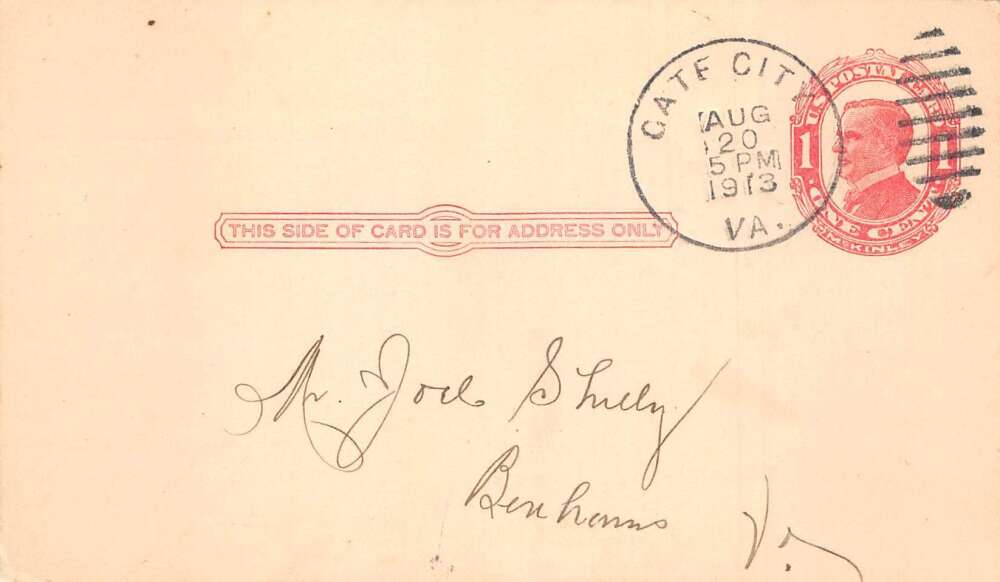 GATE CITY
AUG
20
5 PM
1913
VA.
U.S. POSTAL CARD
1 1
ONE CENT
McKINLEY
THIS SIDE OF CARD IS FOR ADDRESS ONLY
Mr. Joel
Benhams
Va.